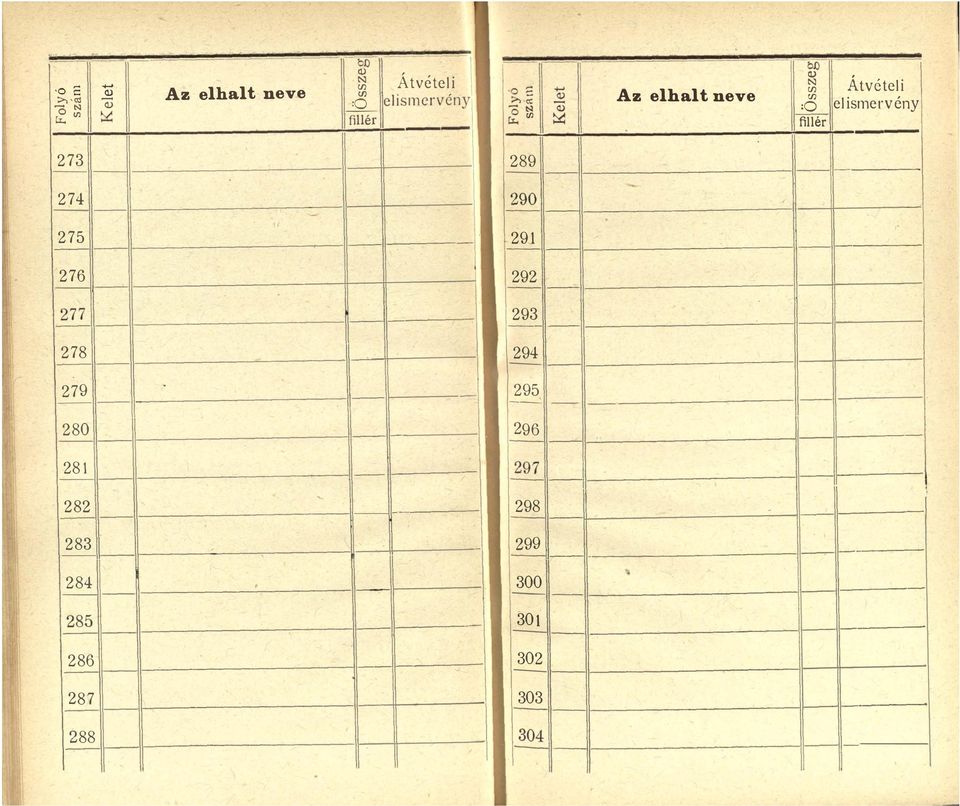 Folyó szám
Kelet
Az elhalt neve
Összeg
fillér
Átvételi
elismervény
273
274
275
276
277
278
279
280
281
282
283
284
285
286
287
288
Folyó szám
Kelet
Az elhalt neve
Összeg
fillér
Átvételi
elismervény
289
290
291
292
293
294
295
296
297
298
299
300
301
302
303
304